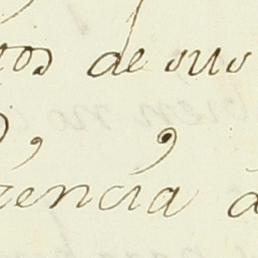 tos de sus
rencia a